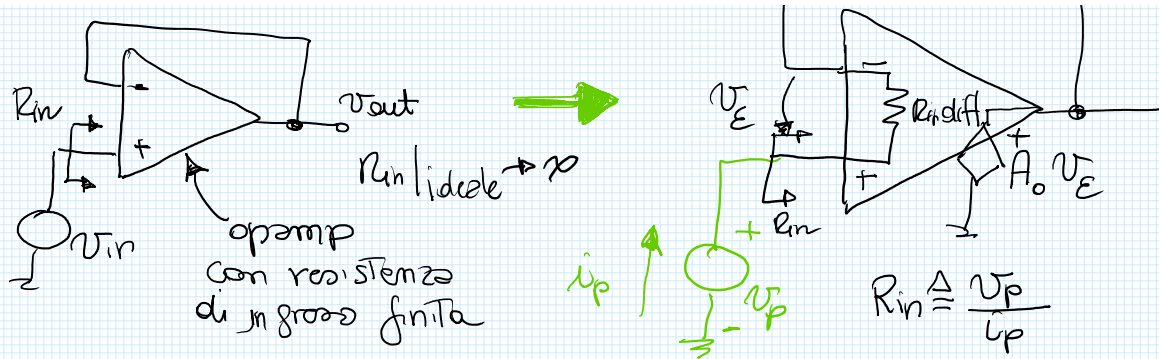 Rin
-
+
vin
vout
Rin|ideale → ∞
opamp
con resistenza
di ingresso finita
vε
-
+
Rin diff
+
A₀ vε
Rin
ip
+
vp
-
Rin ≜ vp / ip